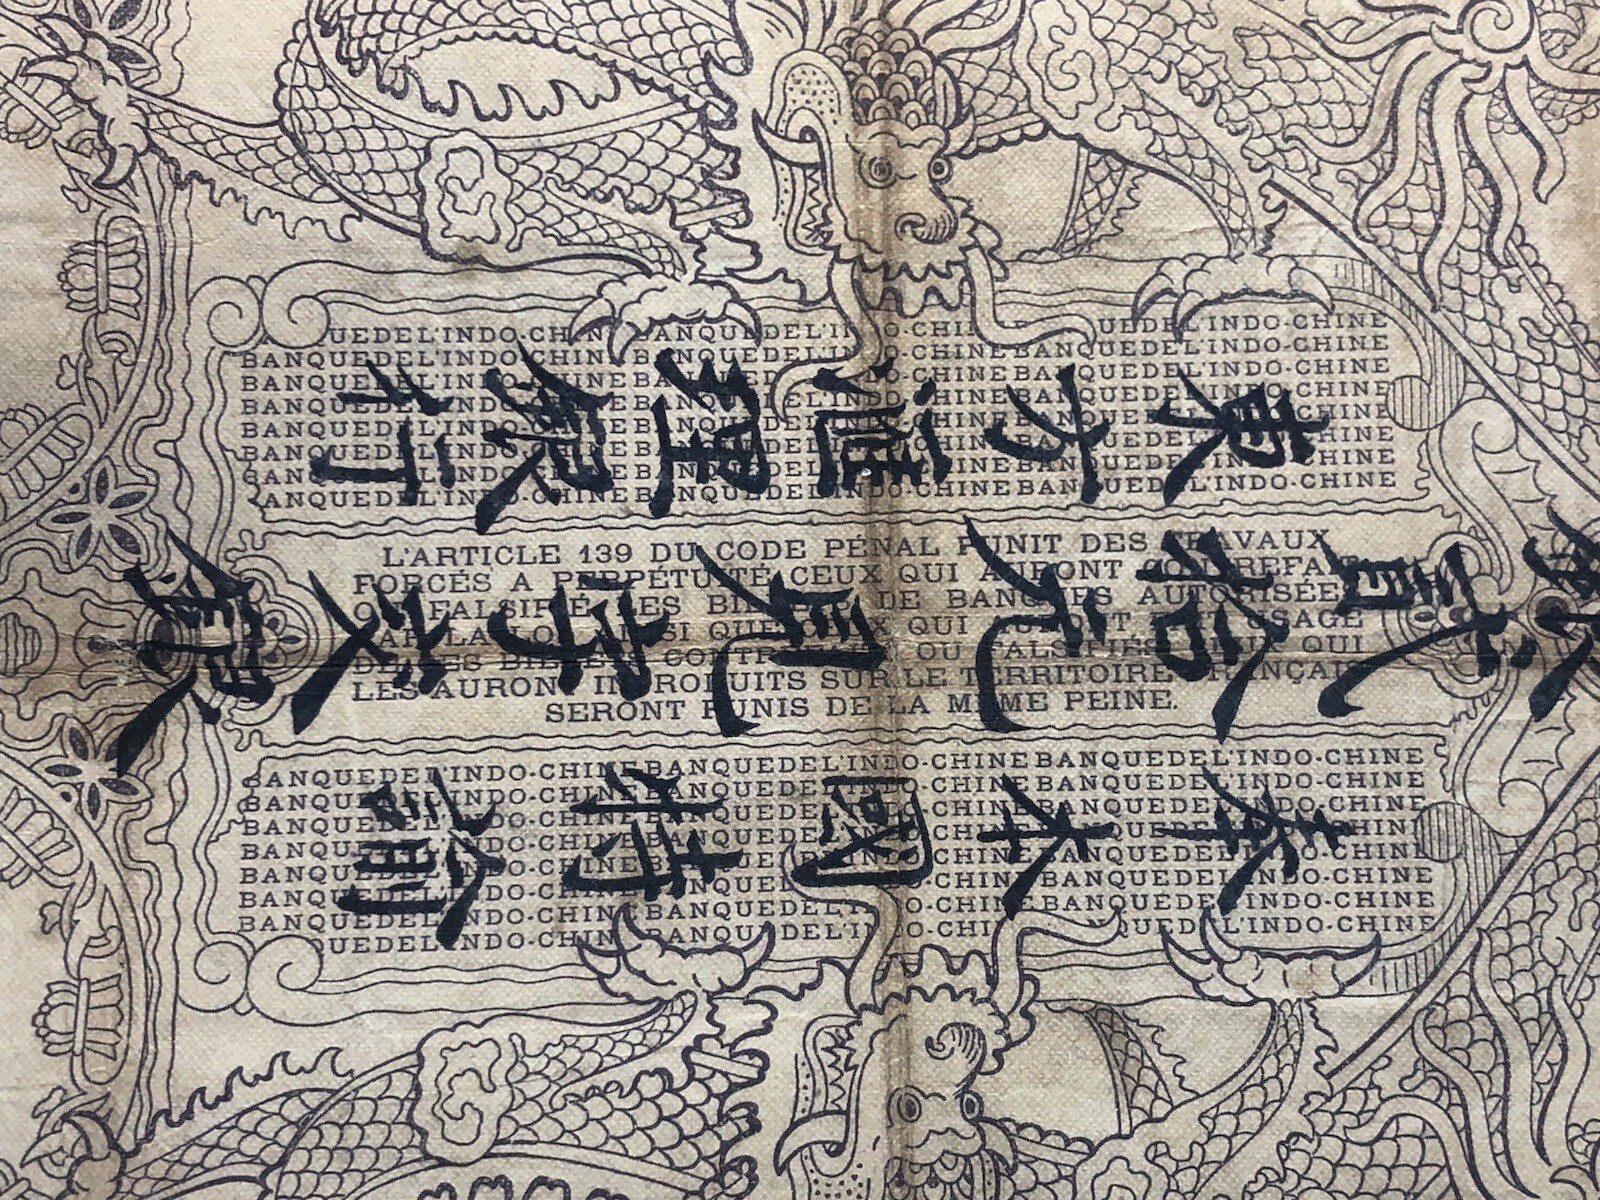 QUEDEL'INDO-CHINE BANQUEDEL'INDO-CHINE BANQUEDEL'INDO-CHINE
BANQUEDEL'INDO-CHINE BANQUEDEL'INDO-CHINE BANQUEDEL'INDO-CHINE
BANQUEDEL'INDO-CHINE BANQUEDEL'INDO-CHINE BANQUEDEL'INDO-CHINE
BANQUEDEL'INDO-CHINE BANQUEDEL'INDO-CHINE BANQUEDEL'INDO-CHINE
BANQUEDEL'INDO-CHINE BANQUEDEL'INDO-CHINE BANQUEDEL'INDO-CHINE
BANQUEDEL'INDO-CHINE BANQUEDEL'INDO-CHINE BANQUEDEL'INDO-CHINE
BANQUEDEL'INDO-CHINE BANQUEDEL'INDO-CHINE BANQUEDEL'INDO-CHINE
BANQUEDEL'INDO-CHINE BANQUEDEL'INDO-CHINE BANQUEDEL'INDO-CHINE
東方滙理銀行
L'ARTICLE 139 DU CODE PÉNAL PUNIT DES TRAVAUX
FORCÉS A PERPÉTUITÉ CEUX QUI AURONT CONTREFAIT
OU FALSIFIÉ LES BILLETS DE BANQUES AUTORISÉES
PAR LA LOI, AINSI QUE CEUX QUI AURONT FAIT USAGE
DE CES BILLETS CONTREFAITS OU FALSIFIÉS. CEUX QUI
LES AURONT INTRODUITS SUR LE TERRITOIRE FRANÇAIS
SERONT PUNIS DE LA MÊME PEINE.
BANQUEDEL'INDO-CHINE BANQUEDEL'INDO-CHINE BANQUEDEL'INDO-CHINE
BANQUEDEL'INDO-CHINE BANQUEDEL'INDO-CHINE BANQUEDEL'INDO-CHINE
BANQUEDEL'INDO-CHINE BANQUEDEL'INDO-CHINE BANQUEDEL'INDO-CHINE
BANQUEDEL'INDO-CHINE BANQUEDEL'INDO-CHINE BANQUEDEL'INDO-CHINE
BANQUEDEL'INDO-CHINE BANQUEDEL'INDO-CHINE BANQUEDEL'INDO-CHINE
BANQUEDEL'INDO-CHINE BANQUEDEL'INDO-CHINE BANQUEDEL'INDO-CHINE
BANQUEDEL'INDO-CHINE BANQUEDEL'INDO-CHINE BANQUEDEL'INDO-CHINE
QUEDEL'INDO-CHINE BANQUEDEL'INDO-CHI QUEDEL'INDO-CHINE
奉本國特諭